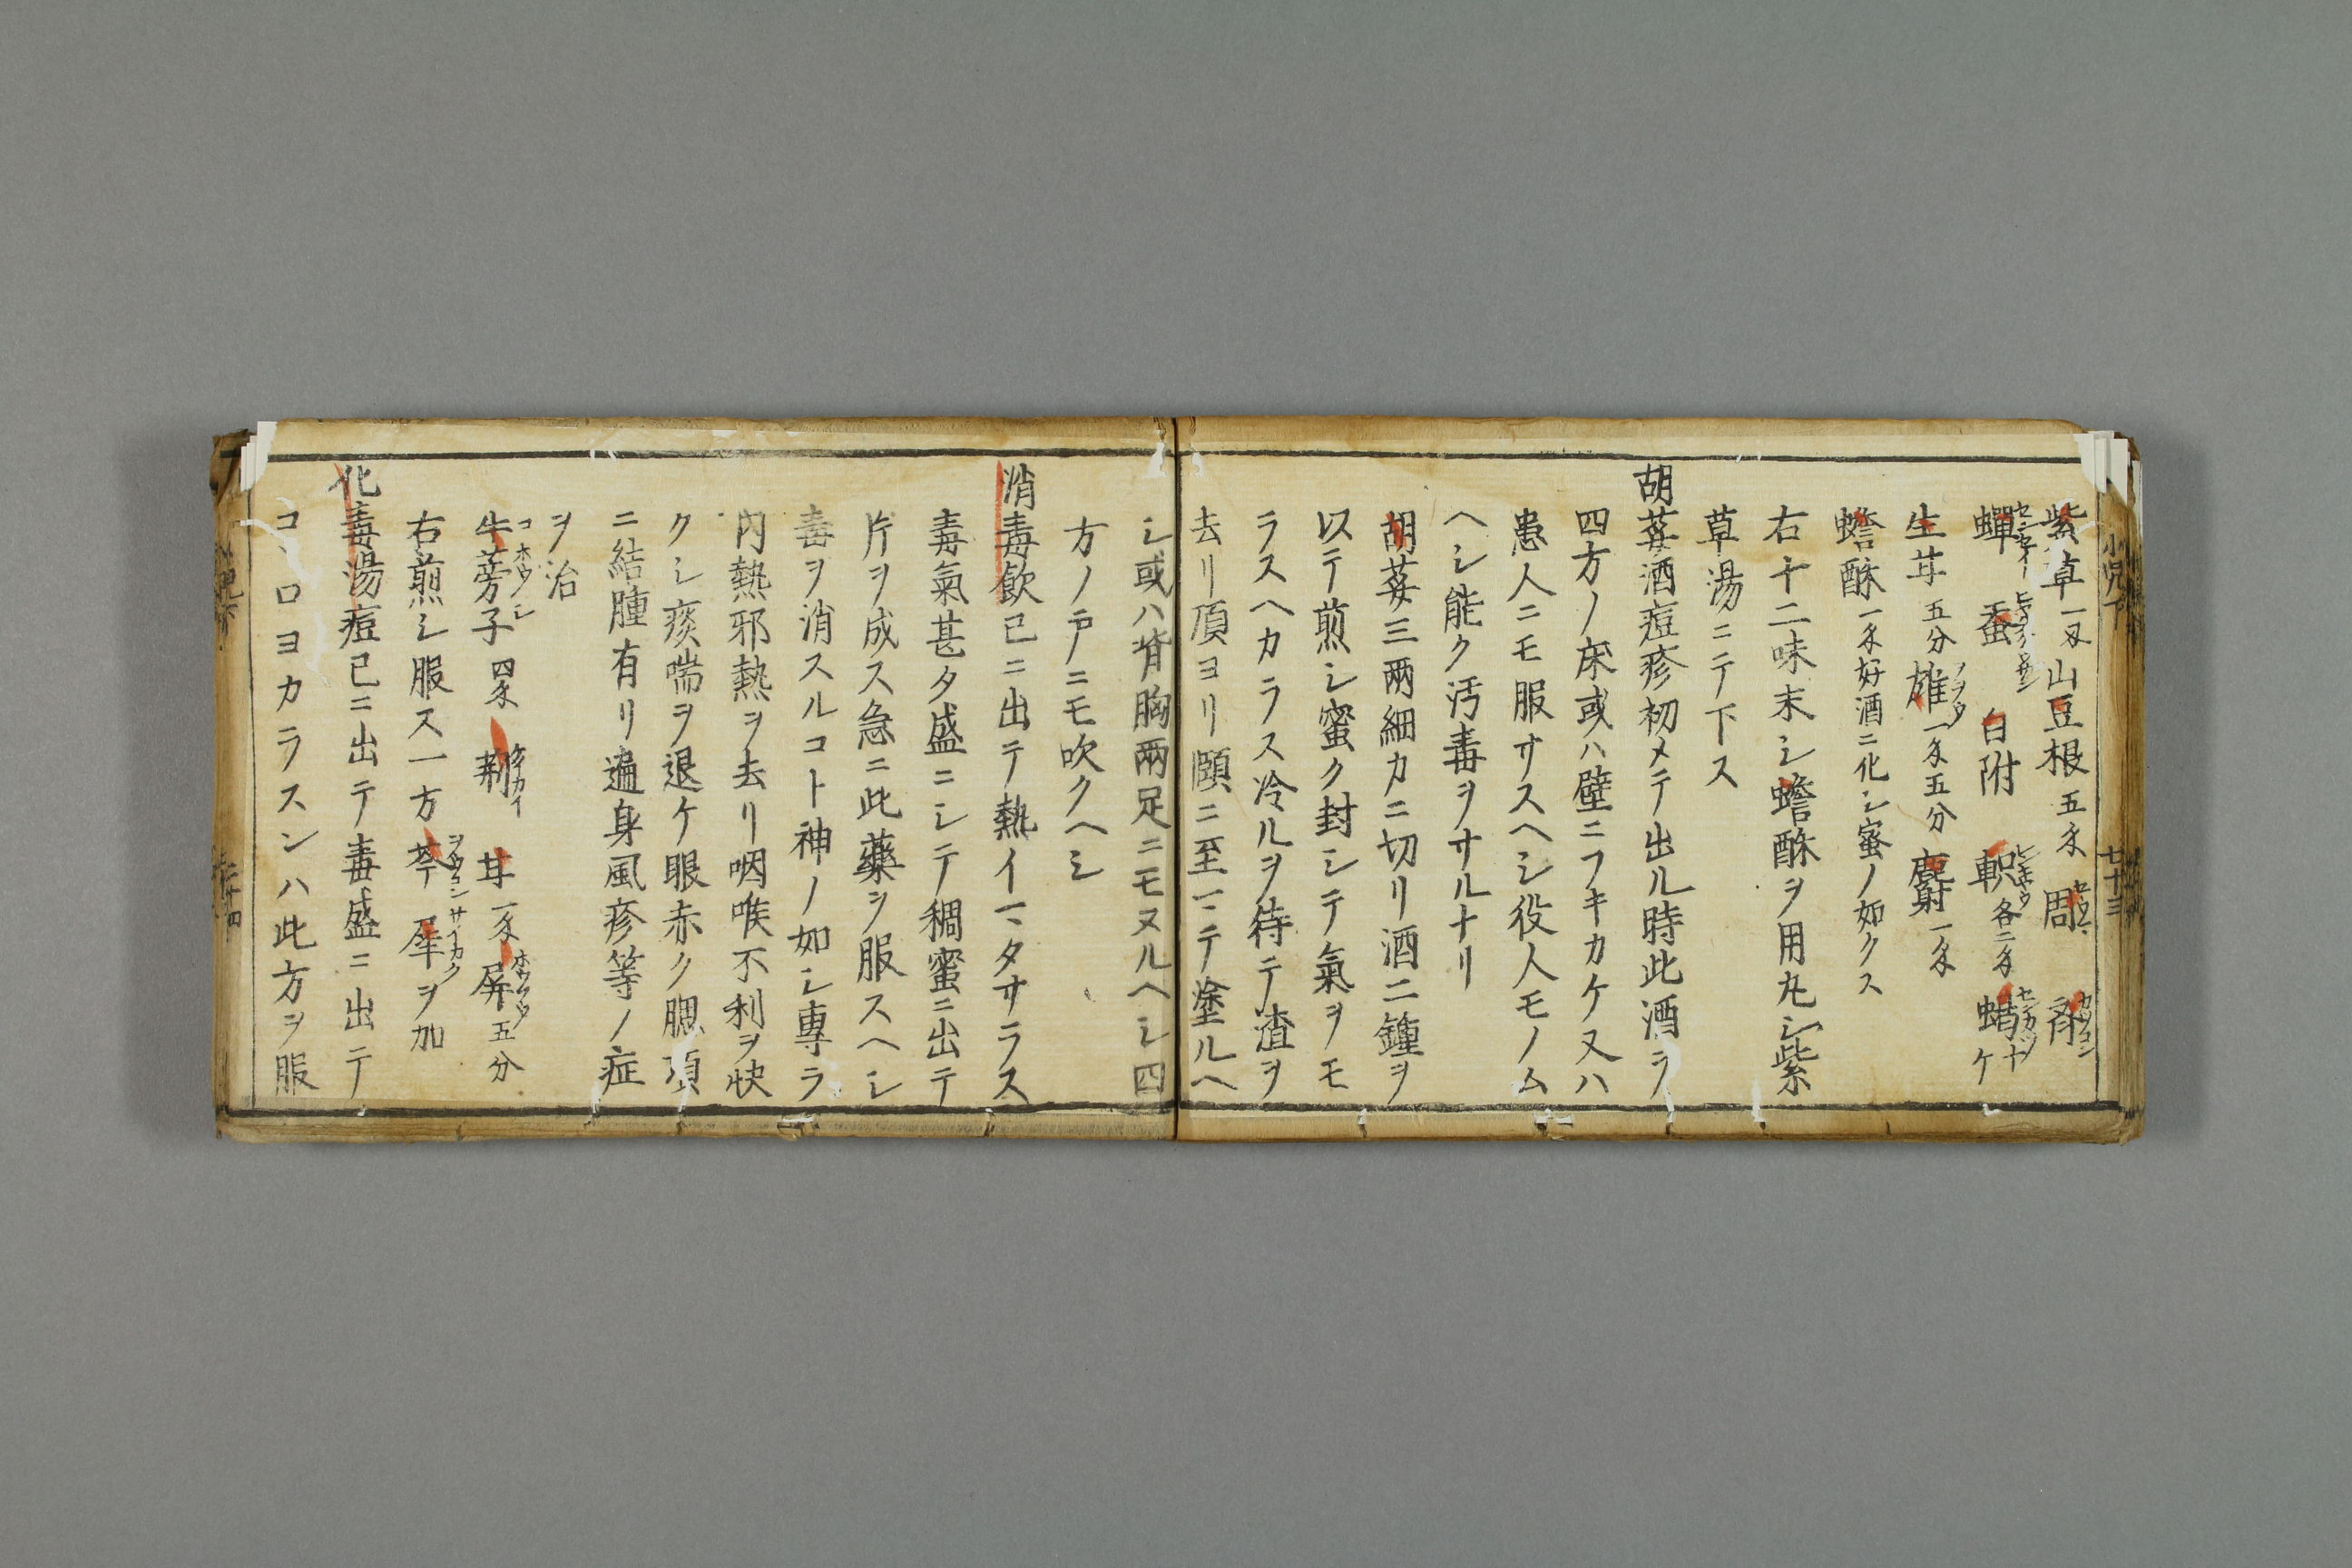 小児下
七十三
紫草一又山豆根五匁周 斉
蟬 蚕 白附 軹各二匁蝎ケ
生甘五分雄一匁五分麝一匁
蟾酥一匁好酒ニ化シ蜜ノ如クス
右十二味末シ蟾酥ヲ用丸シ紫
草湯ニテ下ス
胡荽酒痘疹初メテ出ル時此酒ヲ
四方ノ床或ハ壁ニフキカケ又ハ
患人ニモ服サスヘシ役人モノム
ヘシ能ク汚毒ヲサルナリ
胡荽三兩細カニ切リ酒二鐘ヲ
以テ煎シ蜜ク封シテ氣ヲモ
ラスヘカラス冷ルヲ待テ渣ヲ
去リ頂ヨリ頤ニ至マテ塗ルヘ
シ或ハ背胸兩足ニモヌルヘシ四
方ノ戸ニモ吹クヘシ
消毒飲已ニ出テ熱イマタサラス
毒氣甚タ盛ニシテ稠蜜ニ出テ
片ヲ成ス急ニ此藥ヲ服スヘシ
毒ヲ消スルコト神ノ如シ專ラ
内熱邪熱ヲ去リ咽喉不利ヲ快
クシ痰喘ヲ退ケ眼赤ク腮項
ニ結腫有リ遍身風疹等ノ症
ヲ治
牛蒡子四匁 荊 甘一匁 屏五分
コホウシ ケイカイ ホウフウ
右煎シ服ス一方芩 犀ヲ加
ヲウコン サイカク
化毒湯痘已ニ出テ毒盛ニ出テ
コヽロヨカラスンハ此方ヲ服